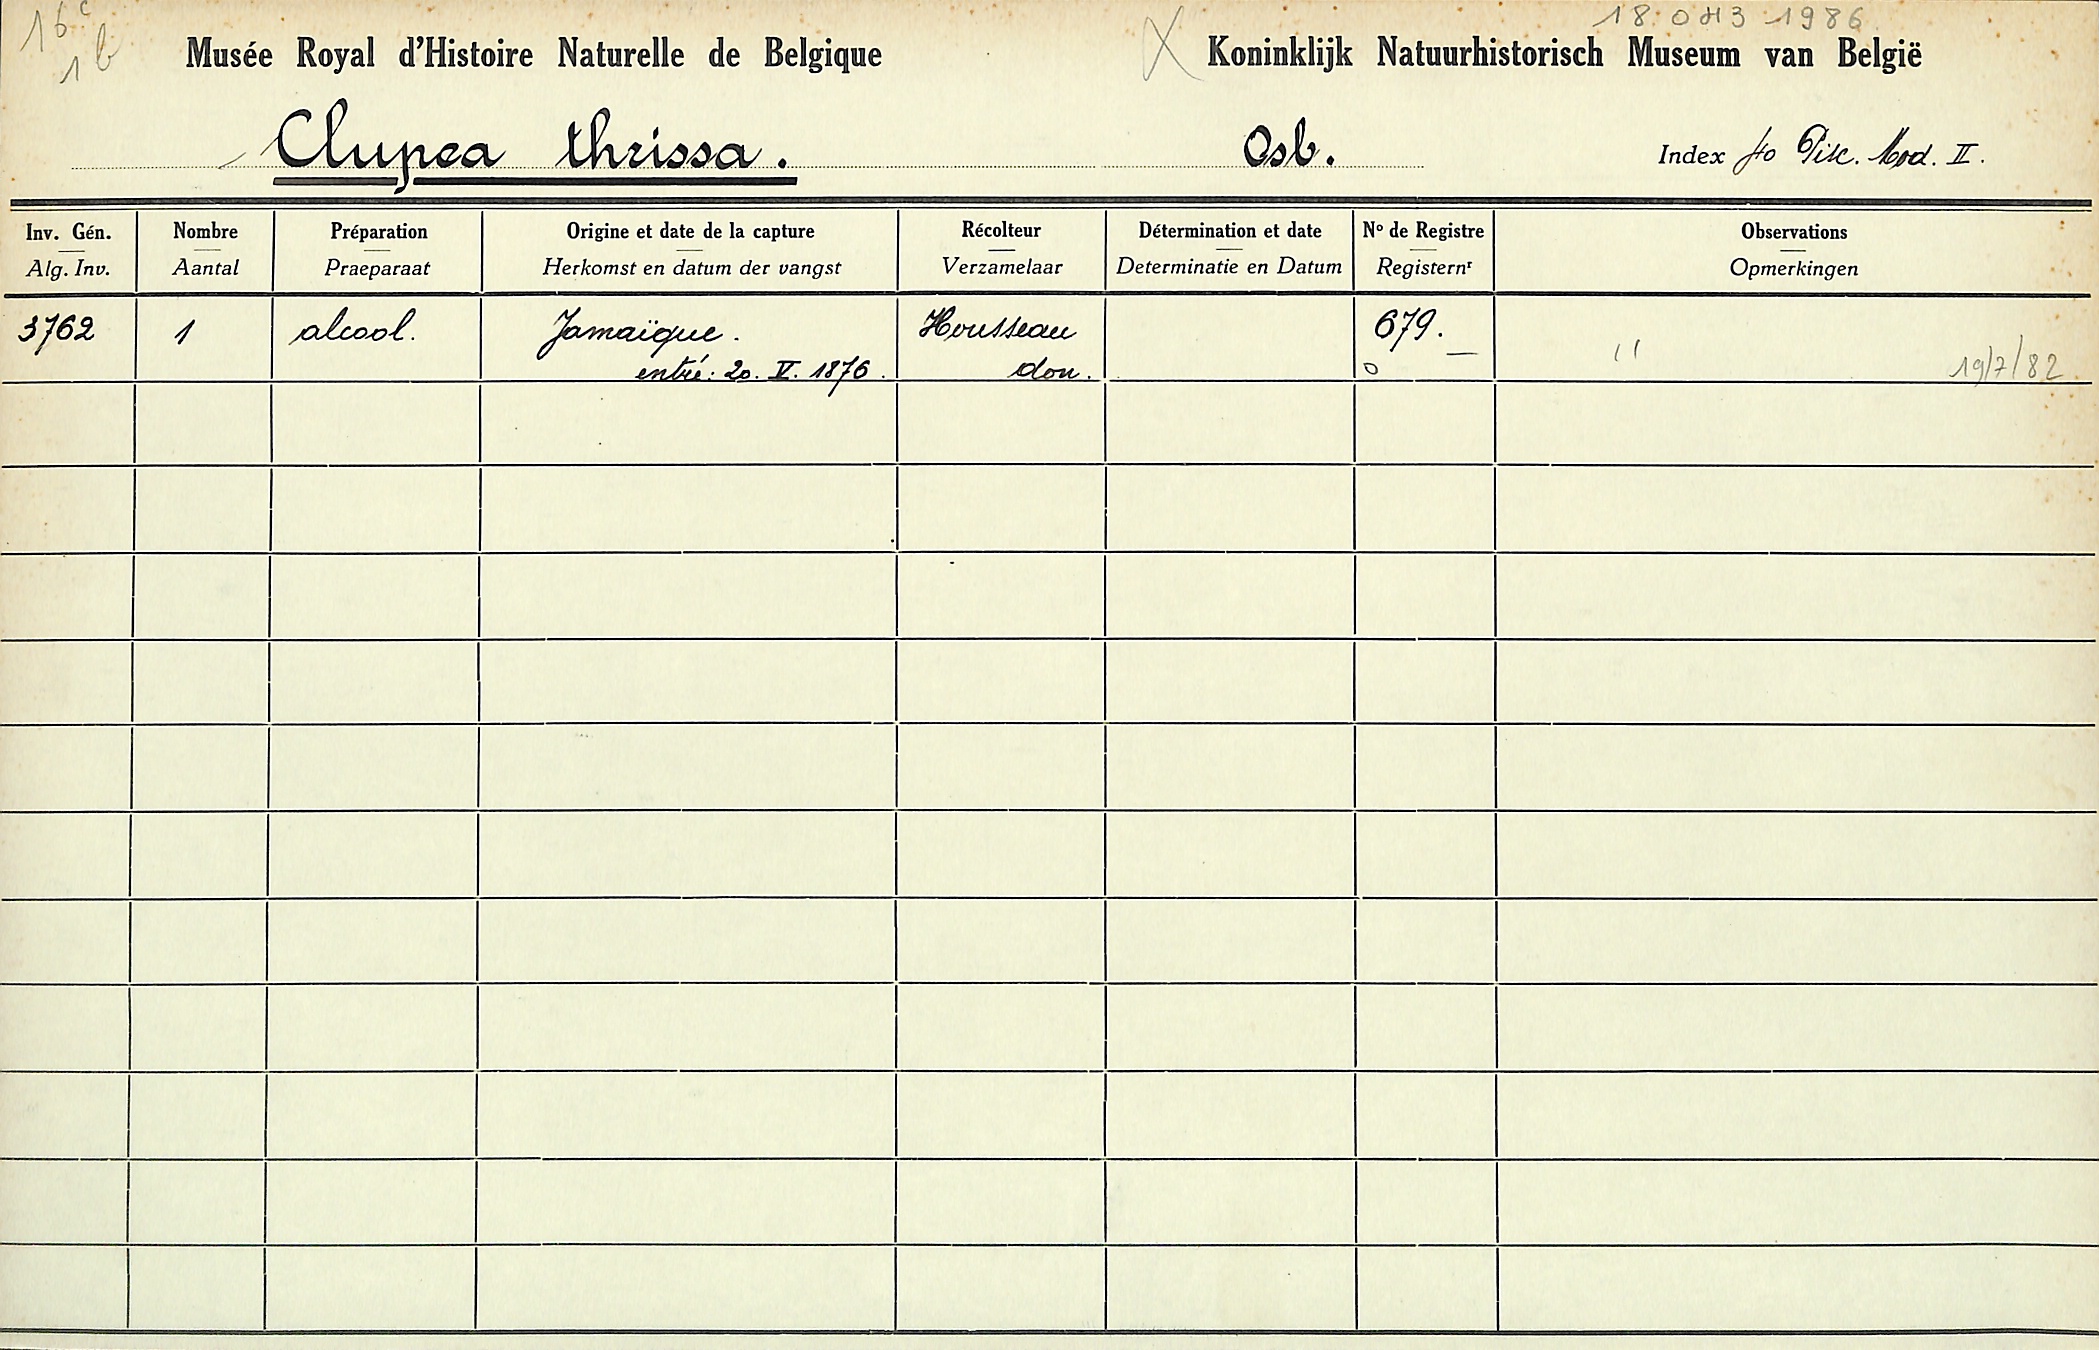 16c
1b
18.04131986
Musée Royal d'Histoire Naturelle de Belgique
X Koninklijk Natuurhistorisch Museum van België
Clupea thrissa. Osb. Index fo Pisc. Mod. II.
Inv. Gén. Nombre Préparation Origine et date de la capture Récolteur Détermination et date No de Registre Observations
Alg. Inv. Aantal Praeparaat Herkomst en datum der vangst Verzamelaar Determinatie en Datum Registernr Opmerkingen
3762 1 alcool. Jamaïque. Housseau 679.
entré: 20. V. 1876. don. 0 " 19/7/82